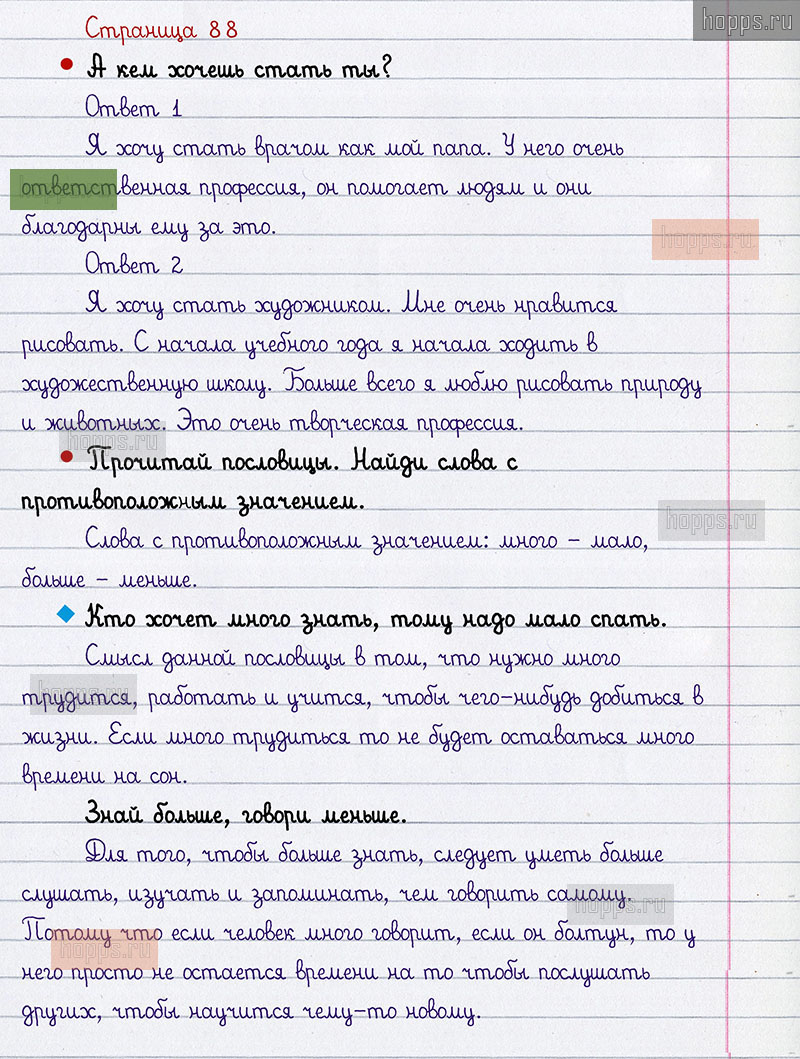 hopps.ru
Страница 88
А кем хочешь стать ты?
Ответ 1
Я хочу стать врачом как мой папа. У него очень
ответственная профессия, он помогает людям и они
благодарны ему за это.
hopps.ru
Ответ 2
Я хочу стать художником. Мне очень нравится
рисовать. С начала учебного года я начала ходить в
художественную школу. Больше всего я люблю рисовать природу
и животных. Это очень творческая профессия.
hopps.ru
Прочитай пословицы. Найди слова с
противоположным значением.
hopps.ru
Слова с противоположным значением: много – мало,
больше – меньше.
Кто хочет много знать, тому надо мало спать.
Смысл данной пословицы в том, что нужно много
hopps.ru
трудится, работать и учится, чтобы чего-нибудь добиться в
жизни. Если много трудиться то не будет оставаться много
времени на сон.
Знай больше, говори меньше.
Для того, чтобы больше знать, следует уметь больше
слушать, изучать и запоминать, чем говорить самому.
hopps.ru
Потому что если человек много говорит, если он болтун, то у
hopps.ru
него просто не остается времени на то чтобы послушать
других, чтобы научится чему-то новому.